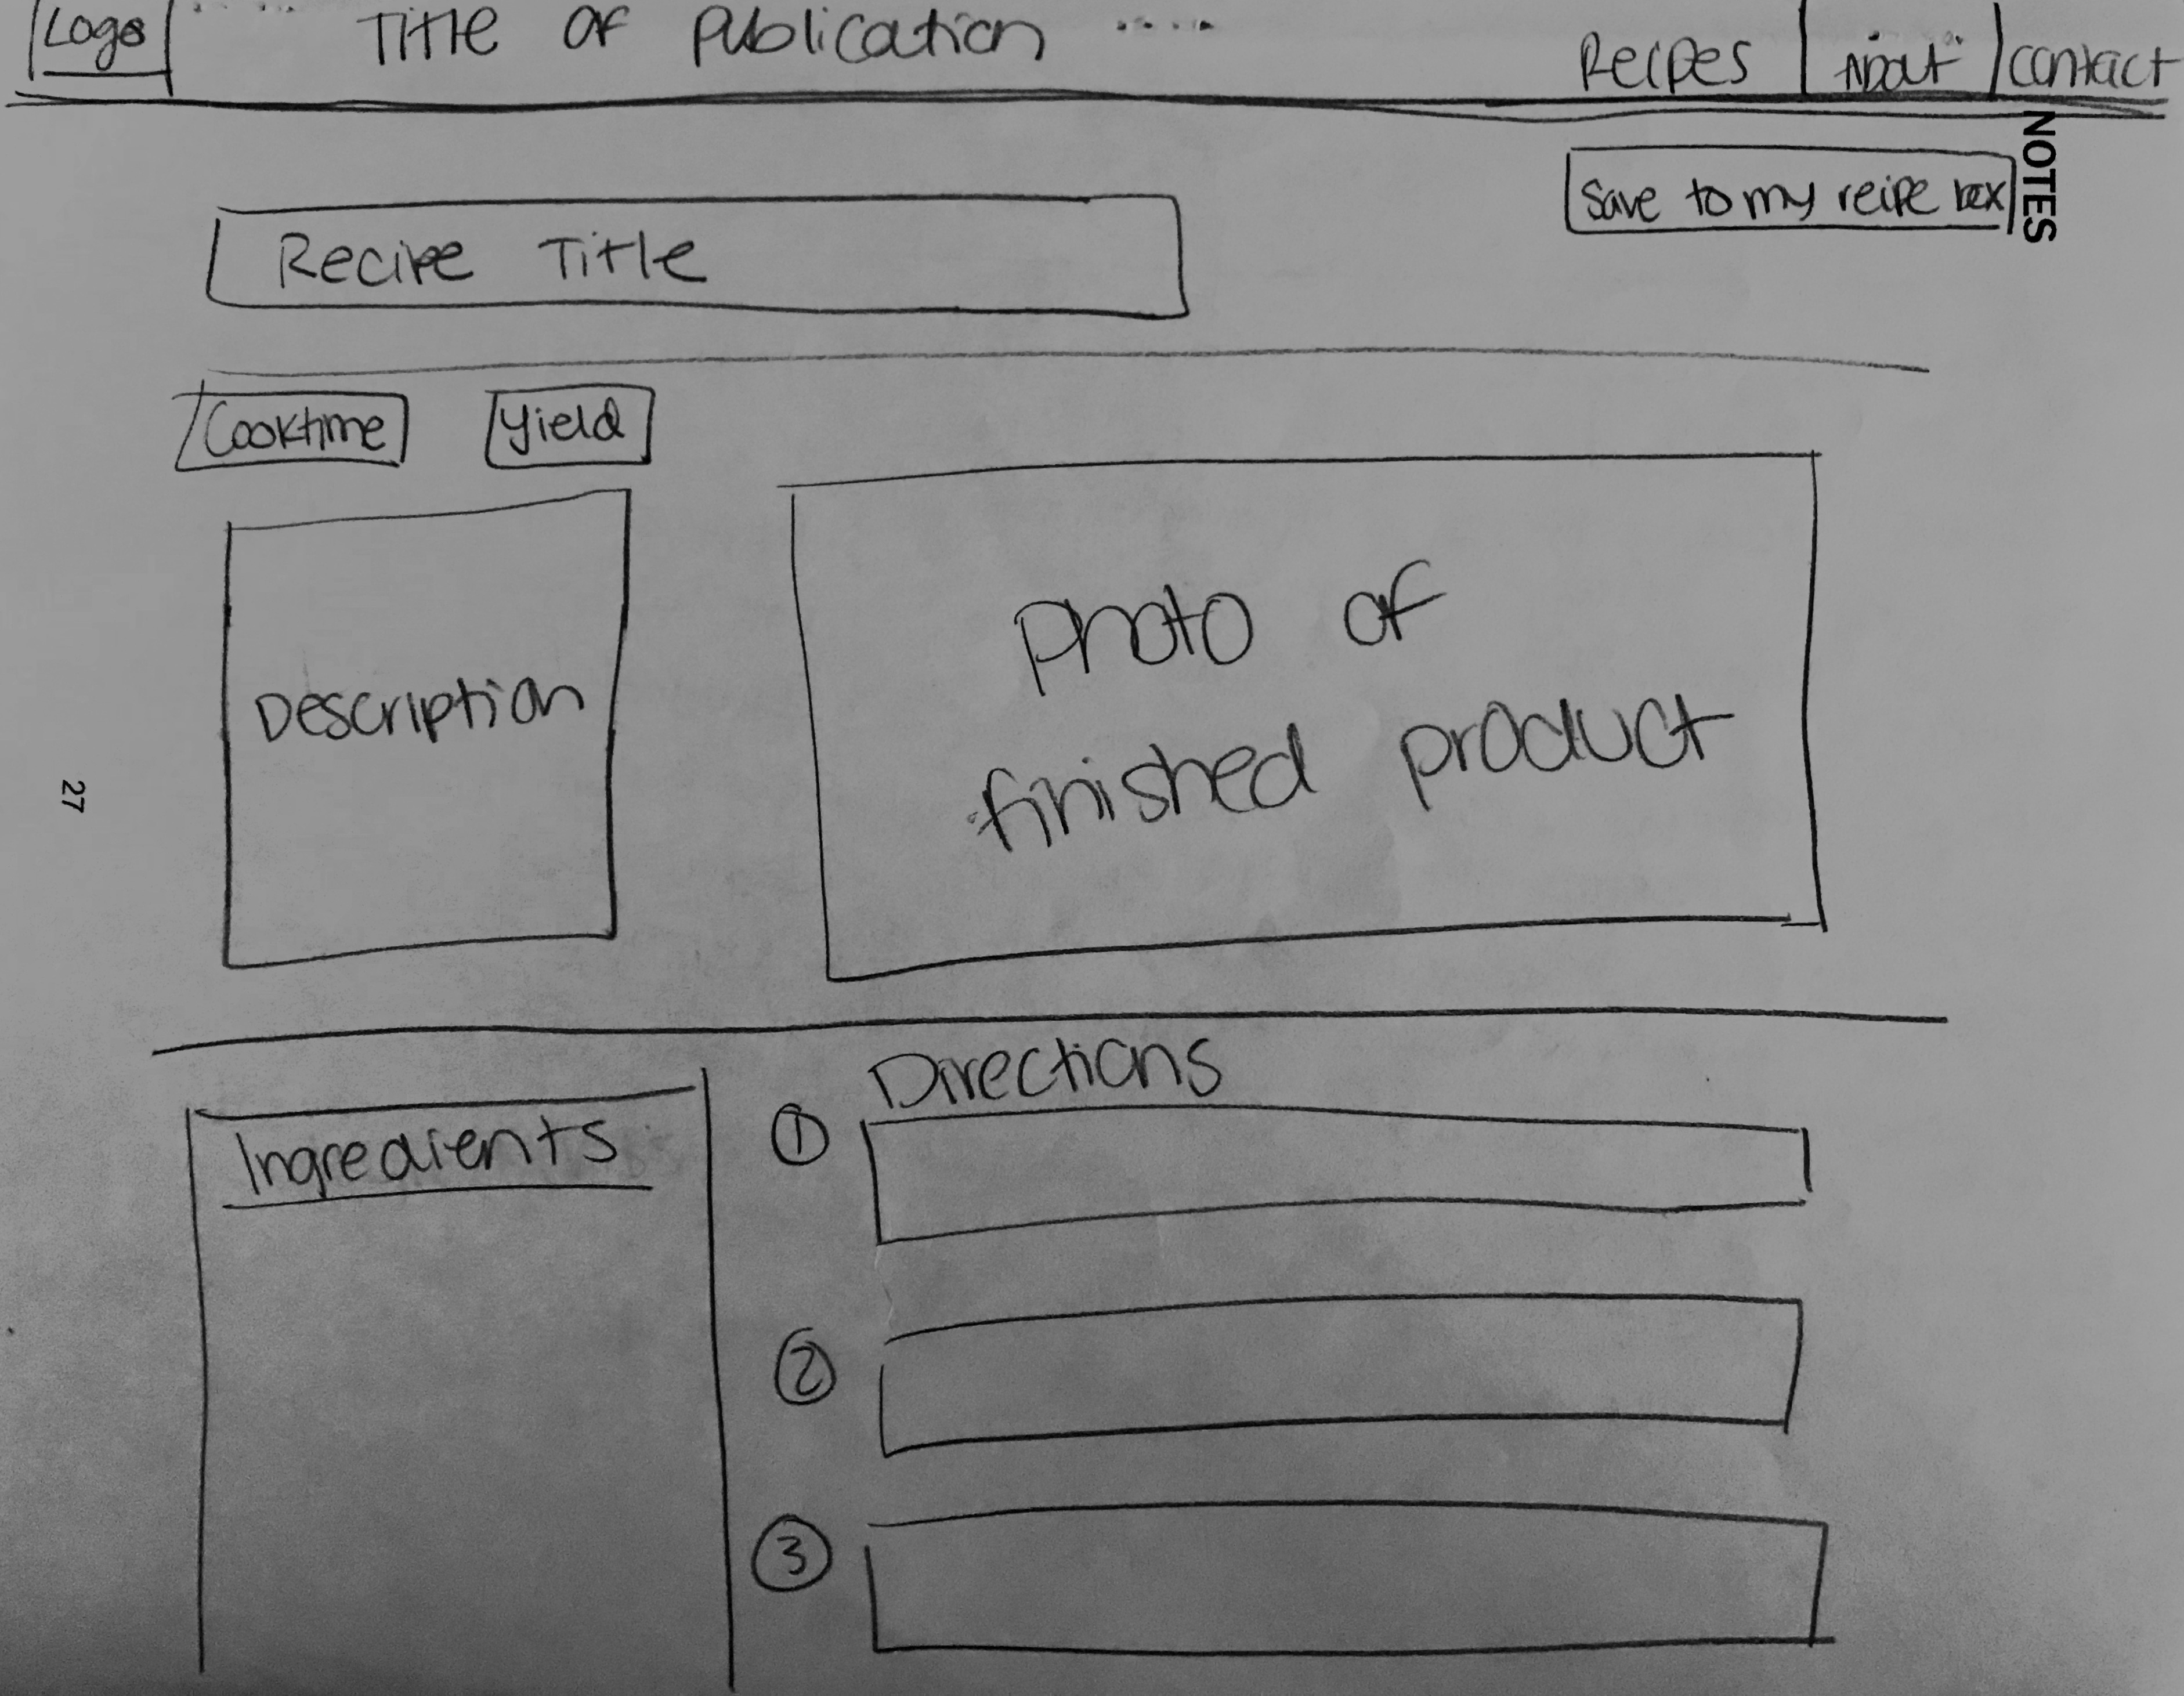 Logo
Title of Publication
Recipes
About
Contact
NOTES
Save to my recipe box
Recipe Title
Cooktime
Yield
Description
Photo of
finished product
27
Directions
Ingredients
1
2
3